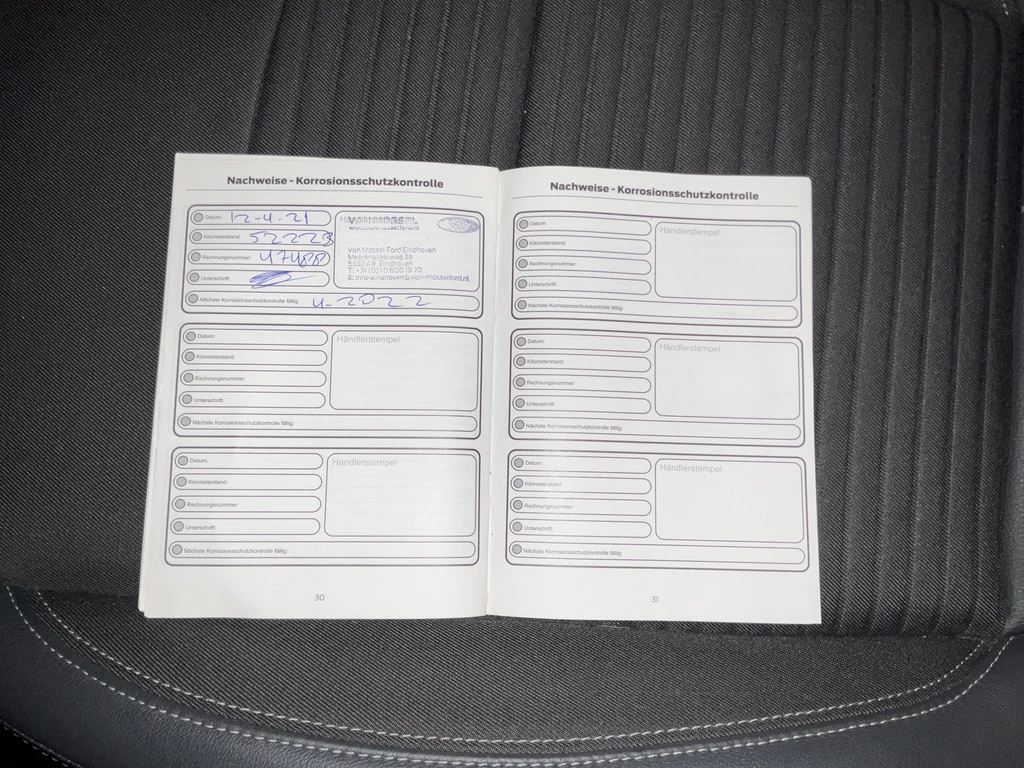 Nachweise - Korrosionsschutzkontrolle
Datum: 12-4-21
Kilometerstand: 52223
Rechnungsnummer: 47488
Unterschrift:
Nächste Korrosionsschutzkontrolle fällig: 4-2022
VAN MOSSEL
www.vanmosselford.nl
Van Mossel Ford Eindhoven
5652 AR Eindhoven
E: info-eindhoven@van-mosselford.nl
Datum:
Kilometerstand:
Rechnungsnummer:
Unterschrift:
Händlerstempel
Nächste Korrosionsschutzkontrolle fällig:
Datum:
Kilometerstand:
Rechnungsnummer:
Unterschrift:
Händlerstempel
Nächste Korrosionsschutzkontrolle fällig:
30
Nachweise - Korrosionsschutzkontrolle
Datum:
Kilometerstand:
Rechnungsnummer:
Unterschrift:
Händlerstempel
Nächste Korrosionsschutzkontrolle fällig:
Datum:
Kilometerstand:
Rechnungsnummer:
Unterschrift:
Händlerstempel
Nächste Korrosionsschutzkontrolle fällig:
Datum:
Kilometerstand:
Rechnungsnummer:
Unterschrift:
Händlerstempel
Nächste Korrosionsschutzkontrolle fällig:
31